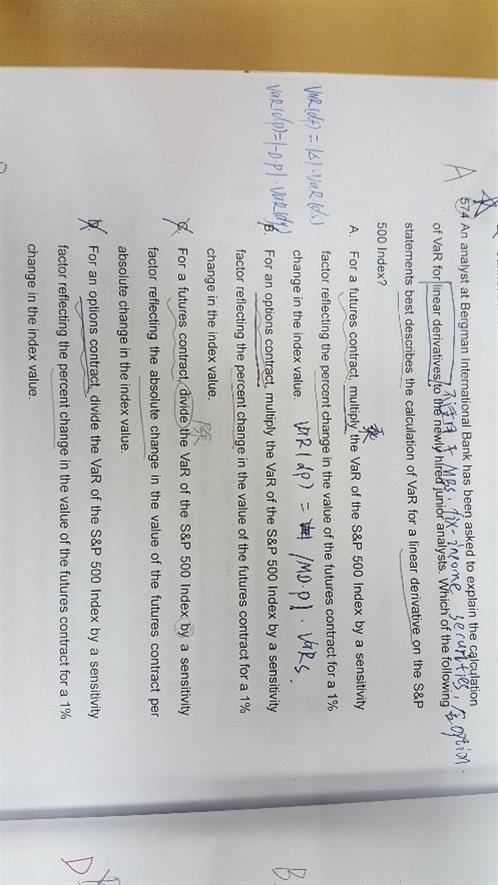 A
574 An analyst at Bergman International Bank has been asked to explain the calculation
of VaR for linear derivatives to the newly hired junior analysts. Which of the following
不适用于 MBS, fix-income securities, 含option.
statements best describes the calculation of VaR for a linear derivative on the S&P
500 Index?
A. For a futures contract, multiply the VaR of the S&P 500 Index by a sensitivity
乘
factor reflecting the percent change in the value of the futures contract for a 1%
change in the index value.
VaR(df) = |Δ|·VaR(ds)
VaR(dp) = |MD·P|·VaRs,
VaR(dp)=|-DP|·VaR(dy)
B. For an options contract, multiply the VaR of the S&P 500 Index by a sensitivity
factor reflecting the percent change in the value of the futures contract for a 1%
change in the index value.
除
C. For a futures contract, divide the VaR of the S&P 500 Index by a sensitivity
factor reflecting the absolute change in the value of the futures contract per
absolute change in the index value.
D. For an options contract, divide the VaR of the S&P 500 Index by a sensitivity
factor reflecting the percent change in the value of the futures contract for a 1%
change in the index value.
B
D